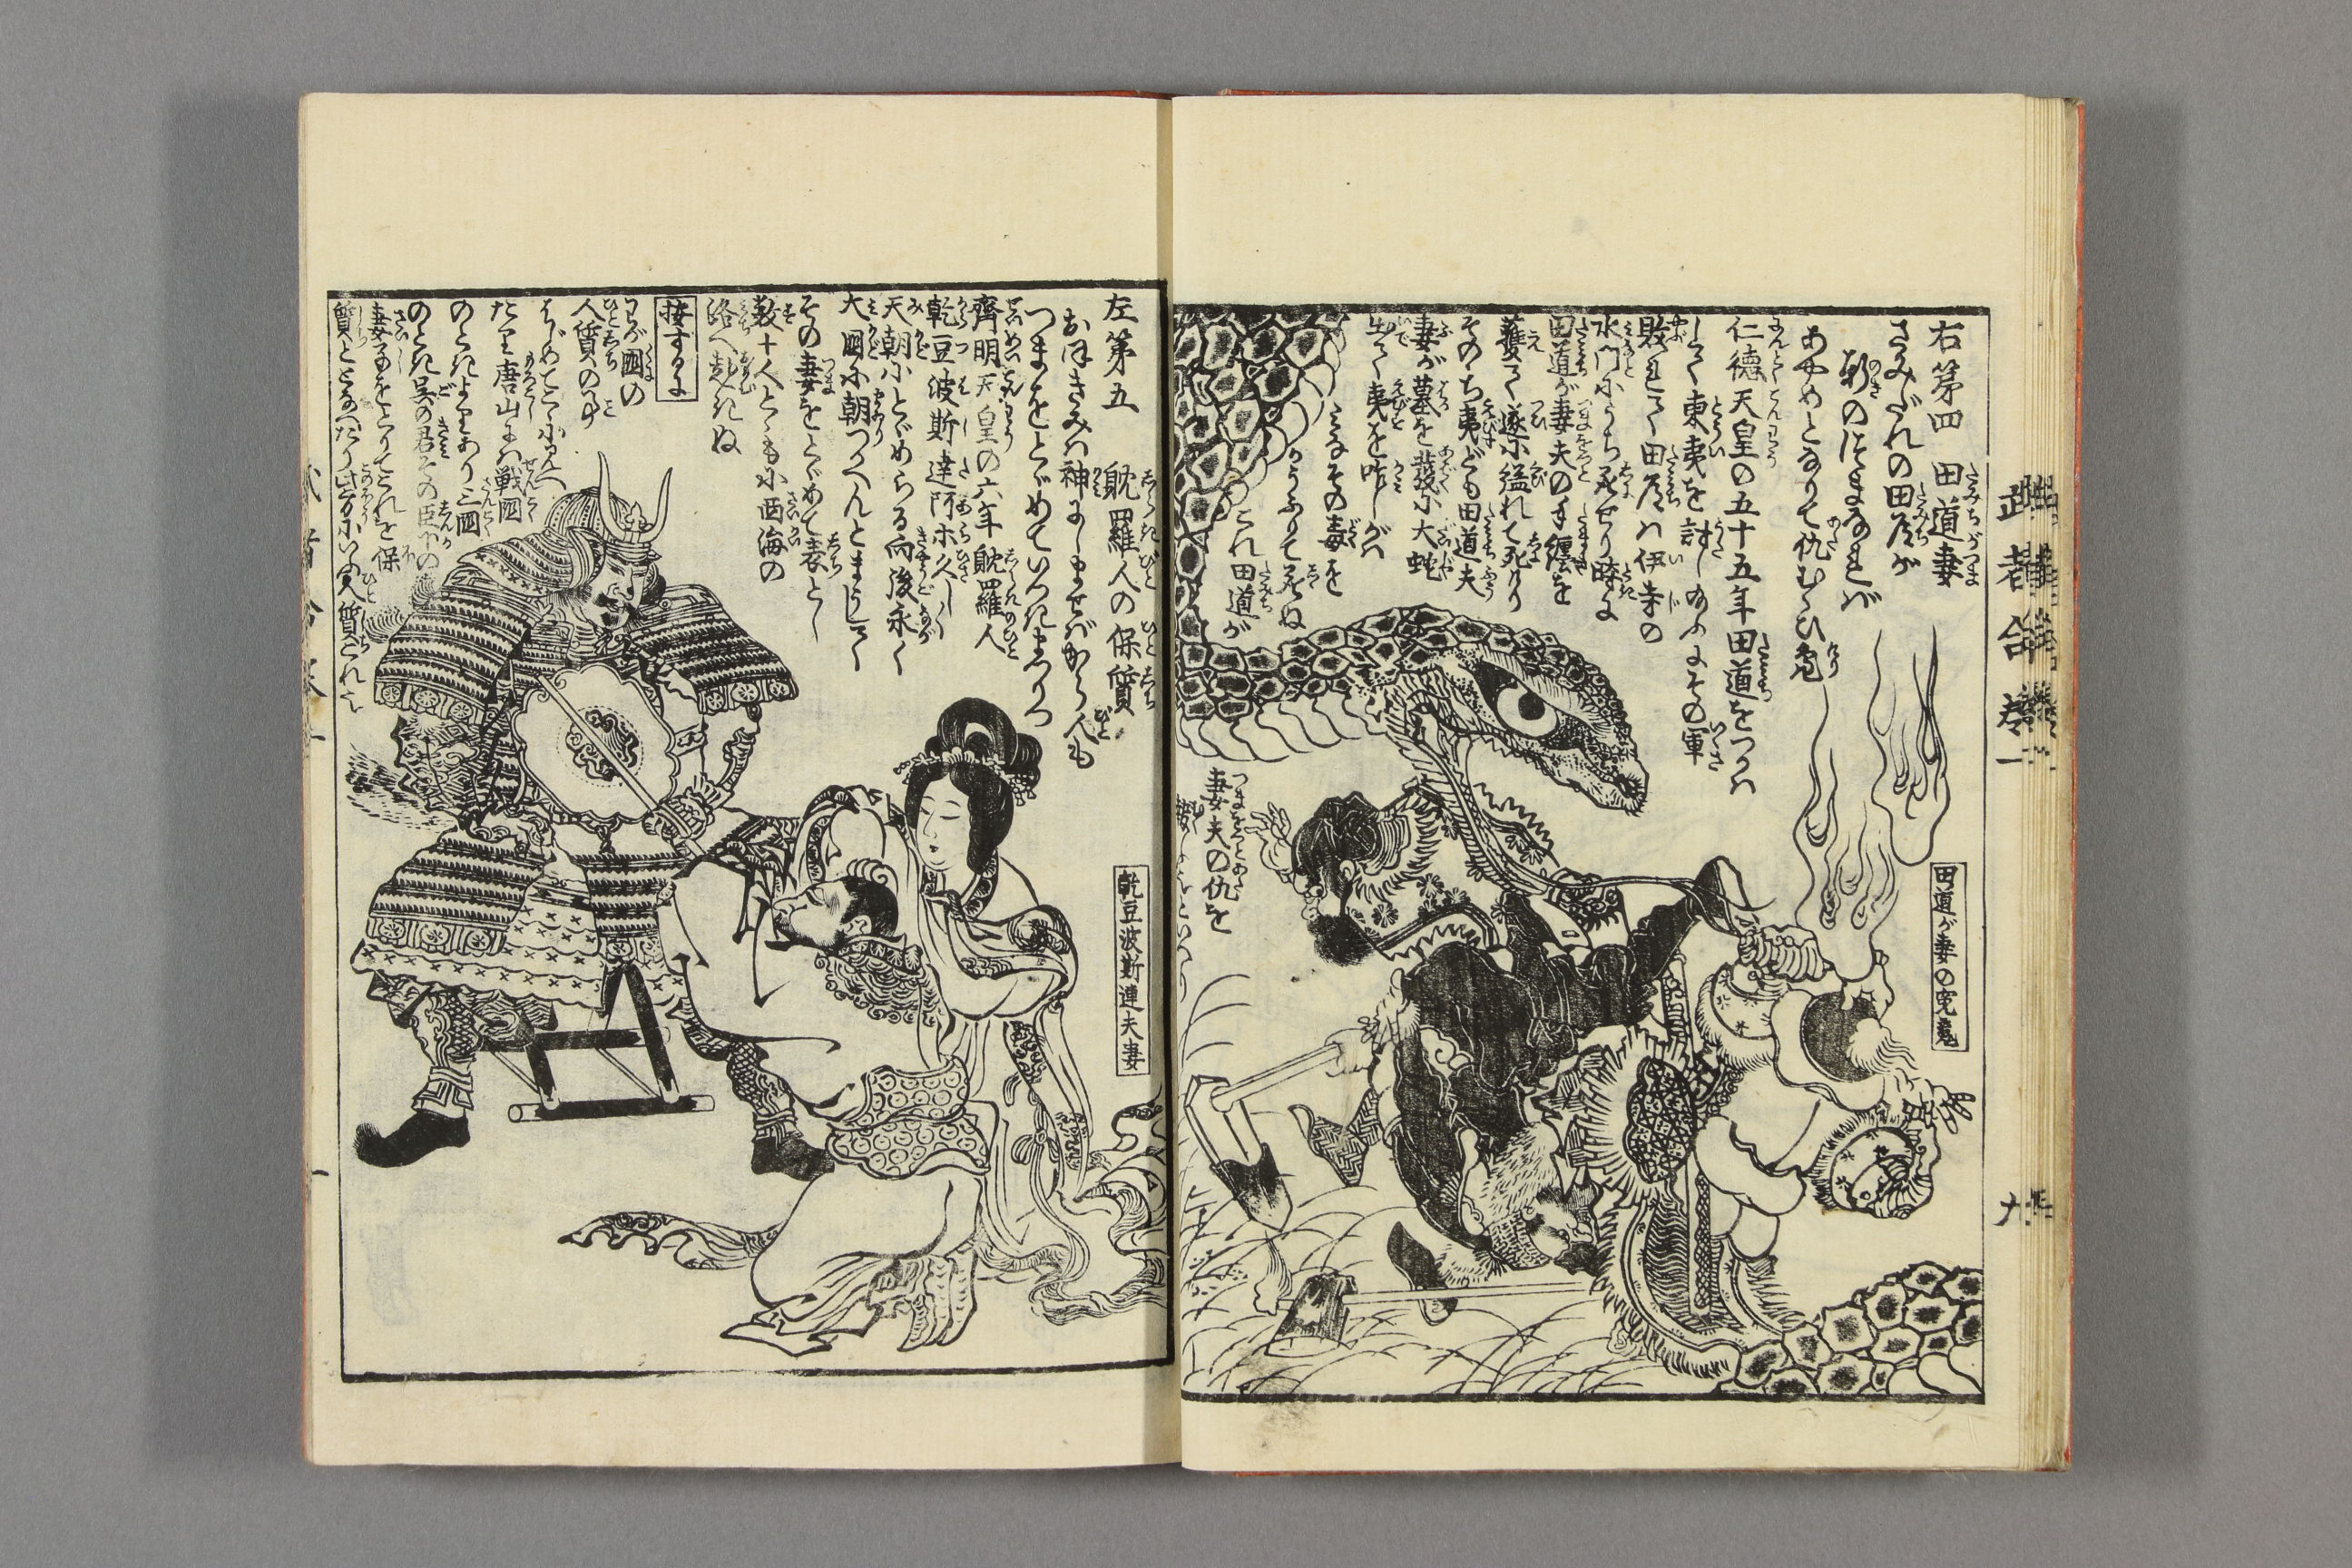 右第四 田道妻
さみだれの田道が
軒のつまなれバ
あやめとなりて仇むくひ鬼
仁徳天皇の五十五年田道をつかハ
して東夷を討し給ふにその軍
敗れて田道ハ伊寺の
水門にうち死せり時に
田道が妻夫の手纏を
獲て遂に縊れて死けり
そのゝち夷ども田道夫
妻が墓を発に大蛇
出て夷を咋しかバ
みなその毒を
かうふりて死ぬ
これ田道が
妻夫の仇を
田道が妻の冤鬼
武者合考一
左第五 䑓羅人の保質
おほきみハ神にしませバから人も
つまをとゞめていつきまつりつ
齊明天皇の六年䑓羅人
乾豆波斯達阿ホ久しく
天朝にとゞめらる而後永く
大國に朝つへんとまうして
その妻をとゞめて表とし
数十人とゝもに西海の
洛へ赴きぬ
按するに
わが國の
人質の事
はじめてこゝに見へ
たり唐山にハ戦國
のときよりあり三國
のとき呉の君その臣下の
妻子をとりてこれを保
質ととなへたり此方にいふ人質これなり
乾豆波斯達夫妻